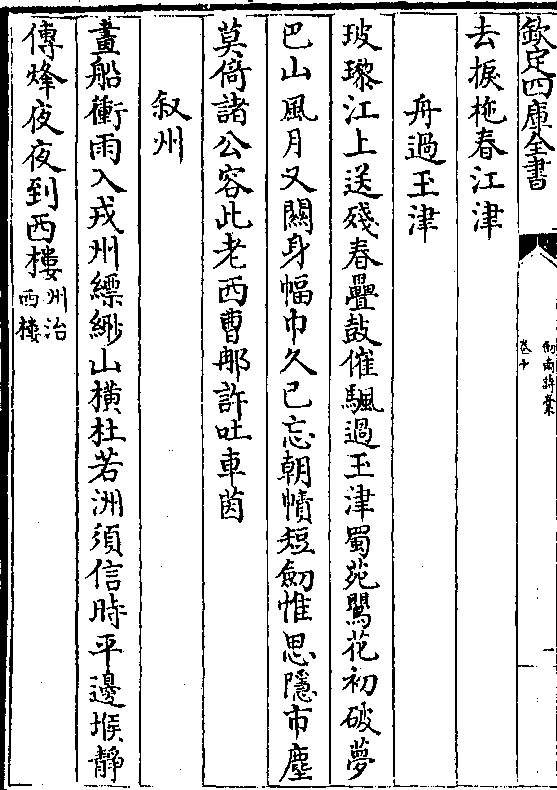 欽定四庫全書
劍南詩藁
卷十
去捩柂春江津
舟過玉津
玻瓈江上送殘春疊鼓催颿過玉津蜀苑鸎花初破夢
巴山風月又關身幅巾久已忘朝幘短劔惟思隱市塵
莫倚諸公容此老西曹郍許吐車茵
叙州
畫船衝雨入戎州縹緲山横杜若洲須信時平邊堠靜
傳烽夜夜到西樓州治西樓